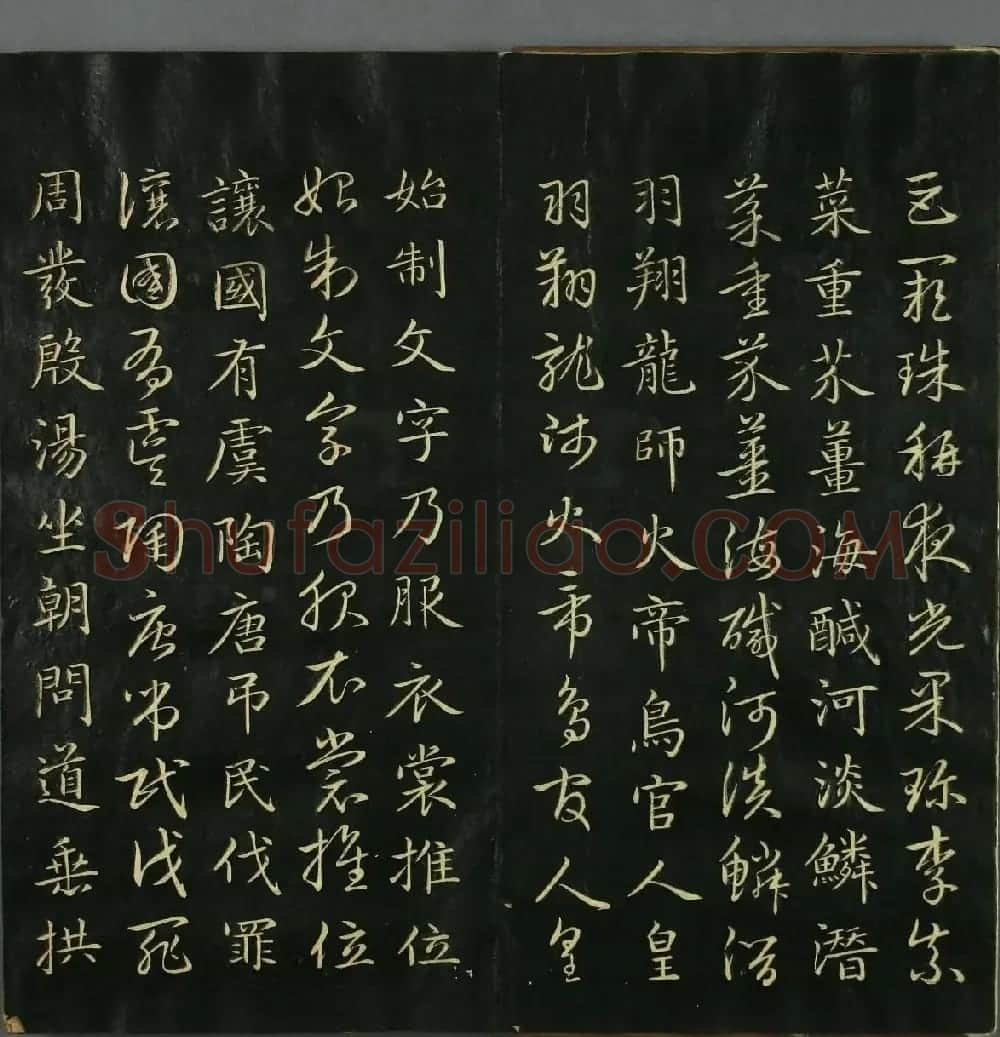 巨闕珠稱夜光果珎李柰
菜重芥薑海醎河淡鱗潛
菜重芥薑海醎河淡鱗潛
羽翔龍師火帝鳥官人皇
羽翔龍師火帝鳥官人皇
始制文字乃服衣裳推位
始制文字乃服衣裳推位
讓國有虞陶唐吊民伐罪
讓國有虞陶唐吊民伐罪
周發殷湯坐朝問道垂拱
Shufaziliao.COM